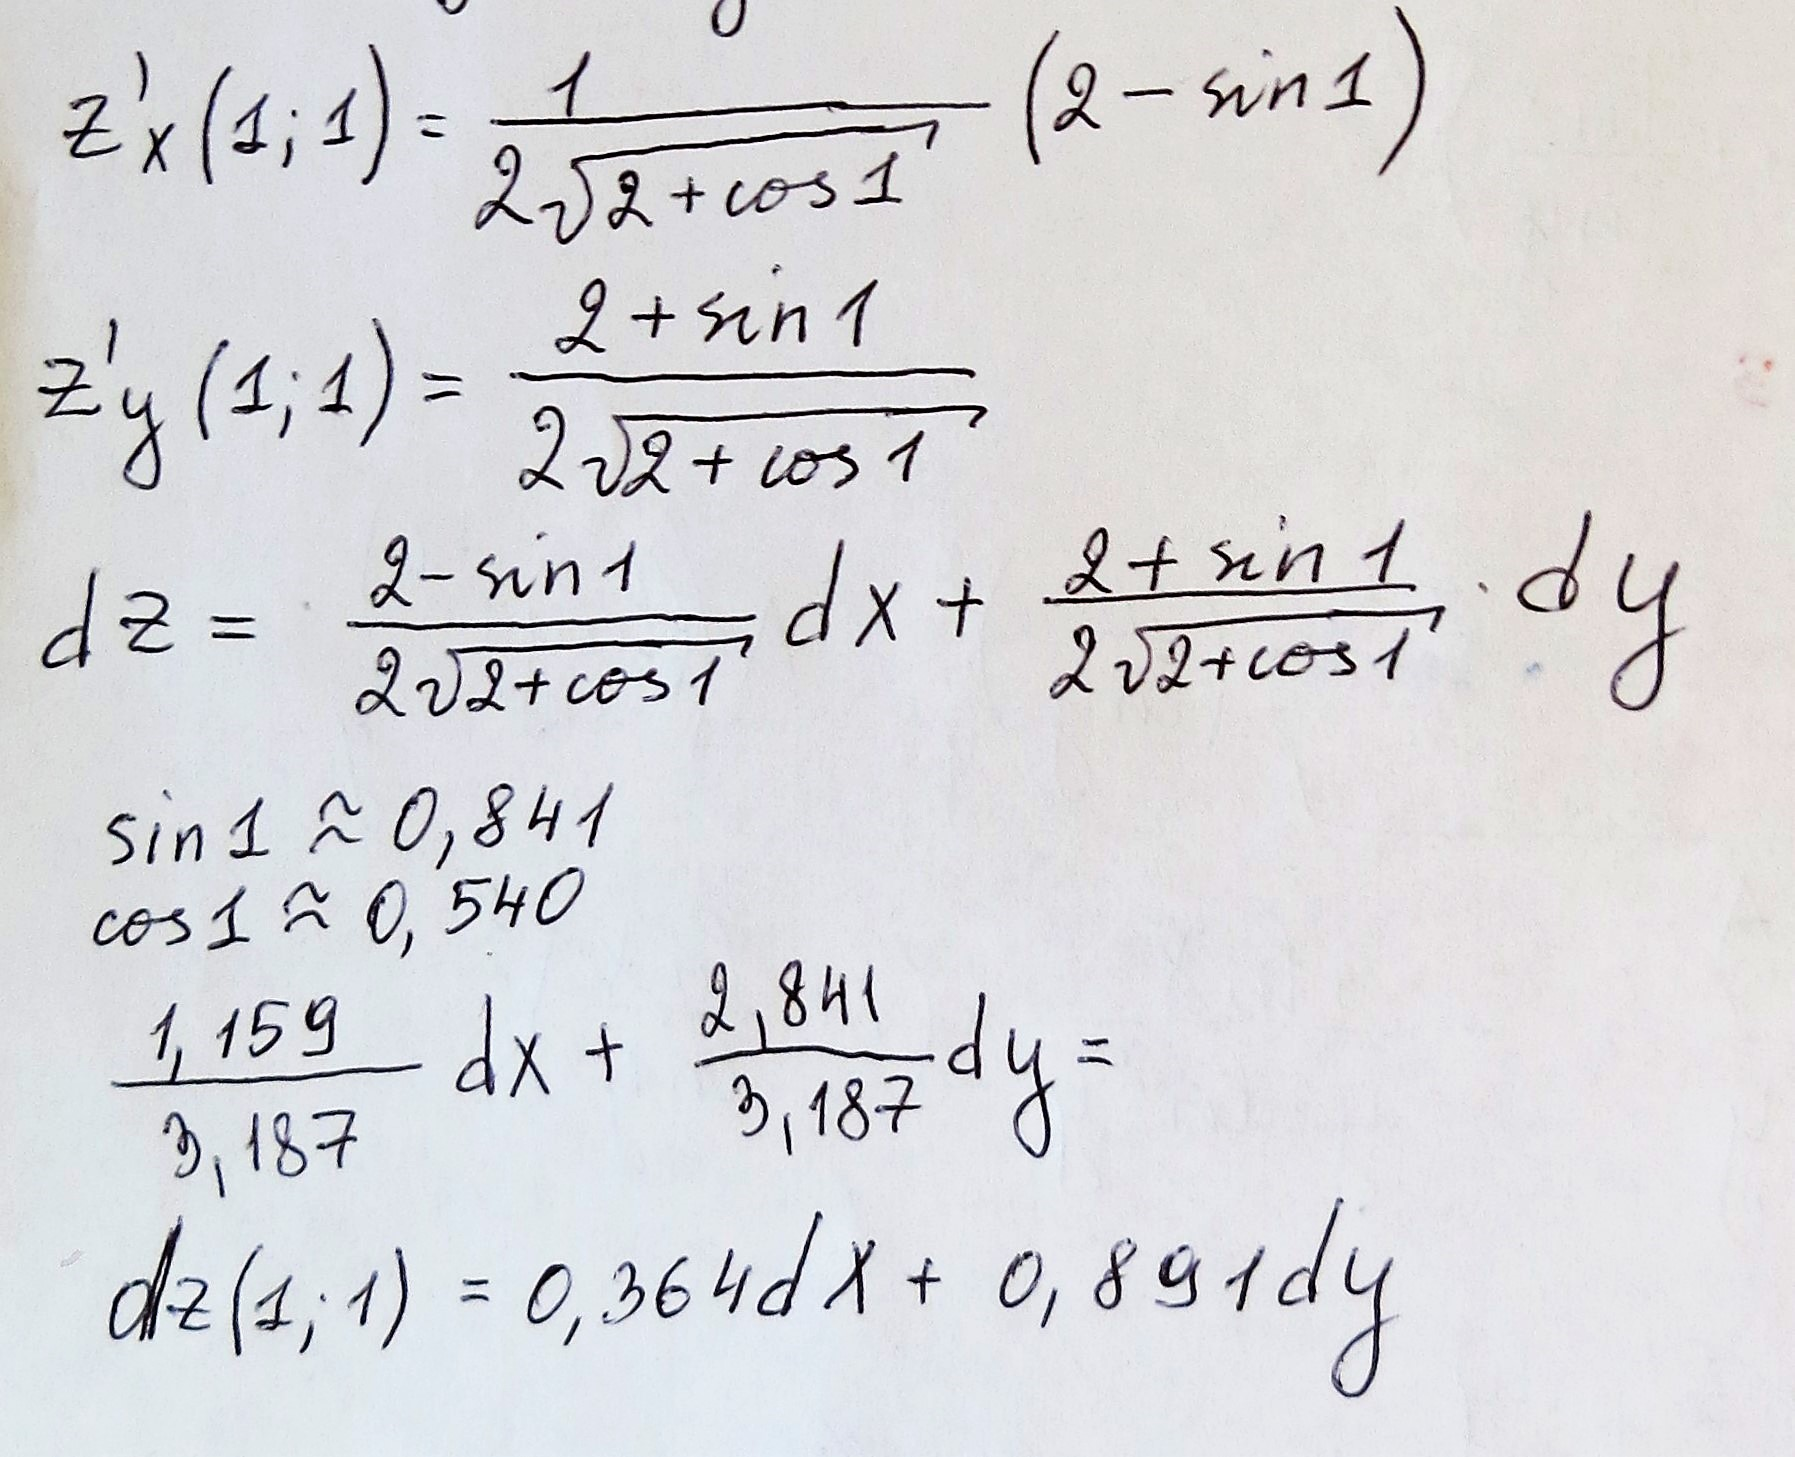 z'x(1;1) = 1/(2√(2+cos1)) (2 - sin1)
z'y(1;1) = (2 + sin1)/(2√(2+cos1))
dz = (2 - sin1)/(2√(2+cos1)) dx + (2 + sin1)/(2√(2+cos1)) · dy
sin1 ≈ 0,841
cos1 ≈ 0,540
1,159/3,187 dx + 2,841/3,187 dy =
dz(1;1) = 0,364dx + 0,891dy